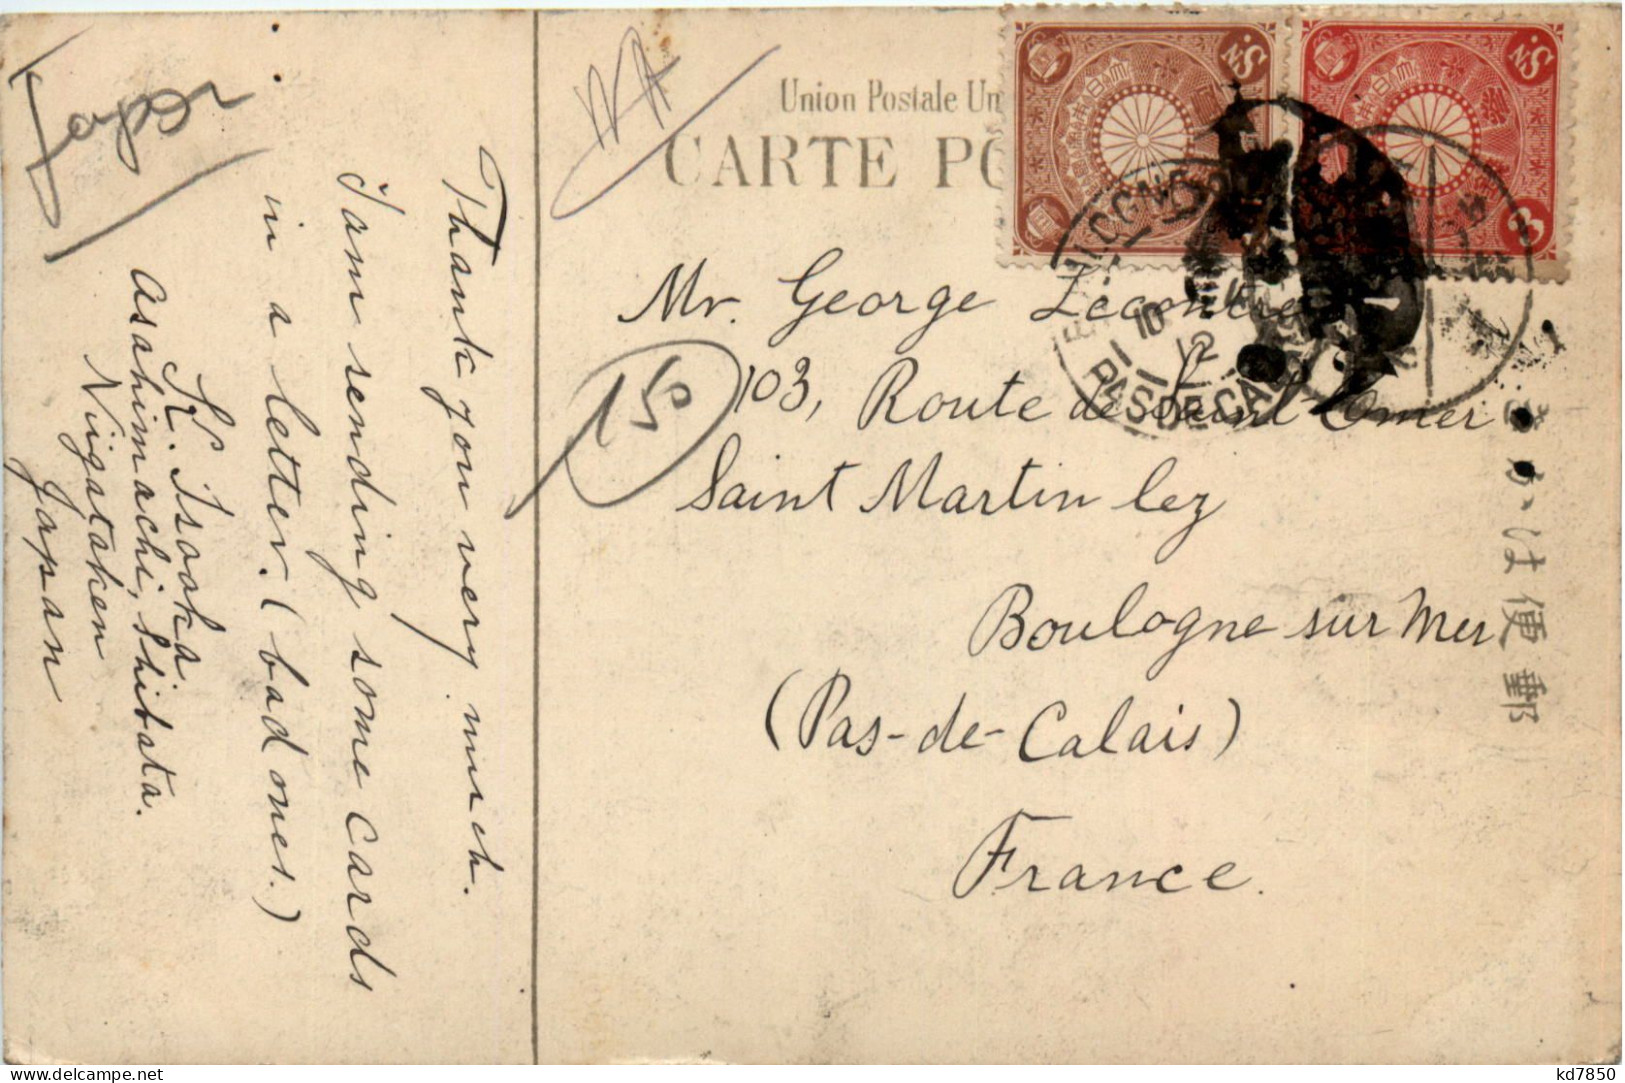 Union Postale Un
CARTE PO
Japon
Thank you very much.
I am sending some cards
in a letter. (bad ones.)
K. Isaoka
Asahimachi, Shibata.
Niigataken
Japan
Mr. George
103, Route de Saint-Omer
Saint Martin lez
Boulogne sur Mer
(Pas-de-Calais)
France.
150
3
PAS DE CALAIS
郵便はかき
kd7850